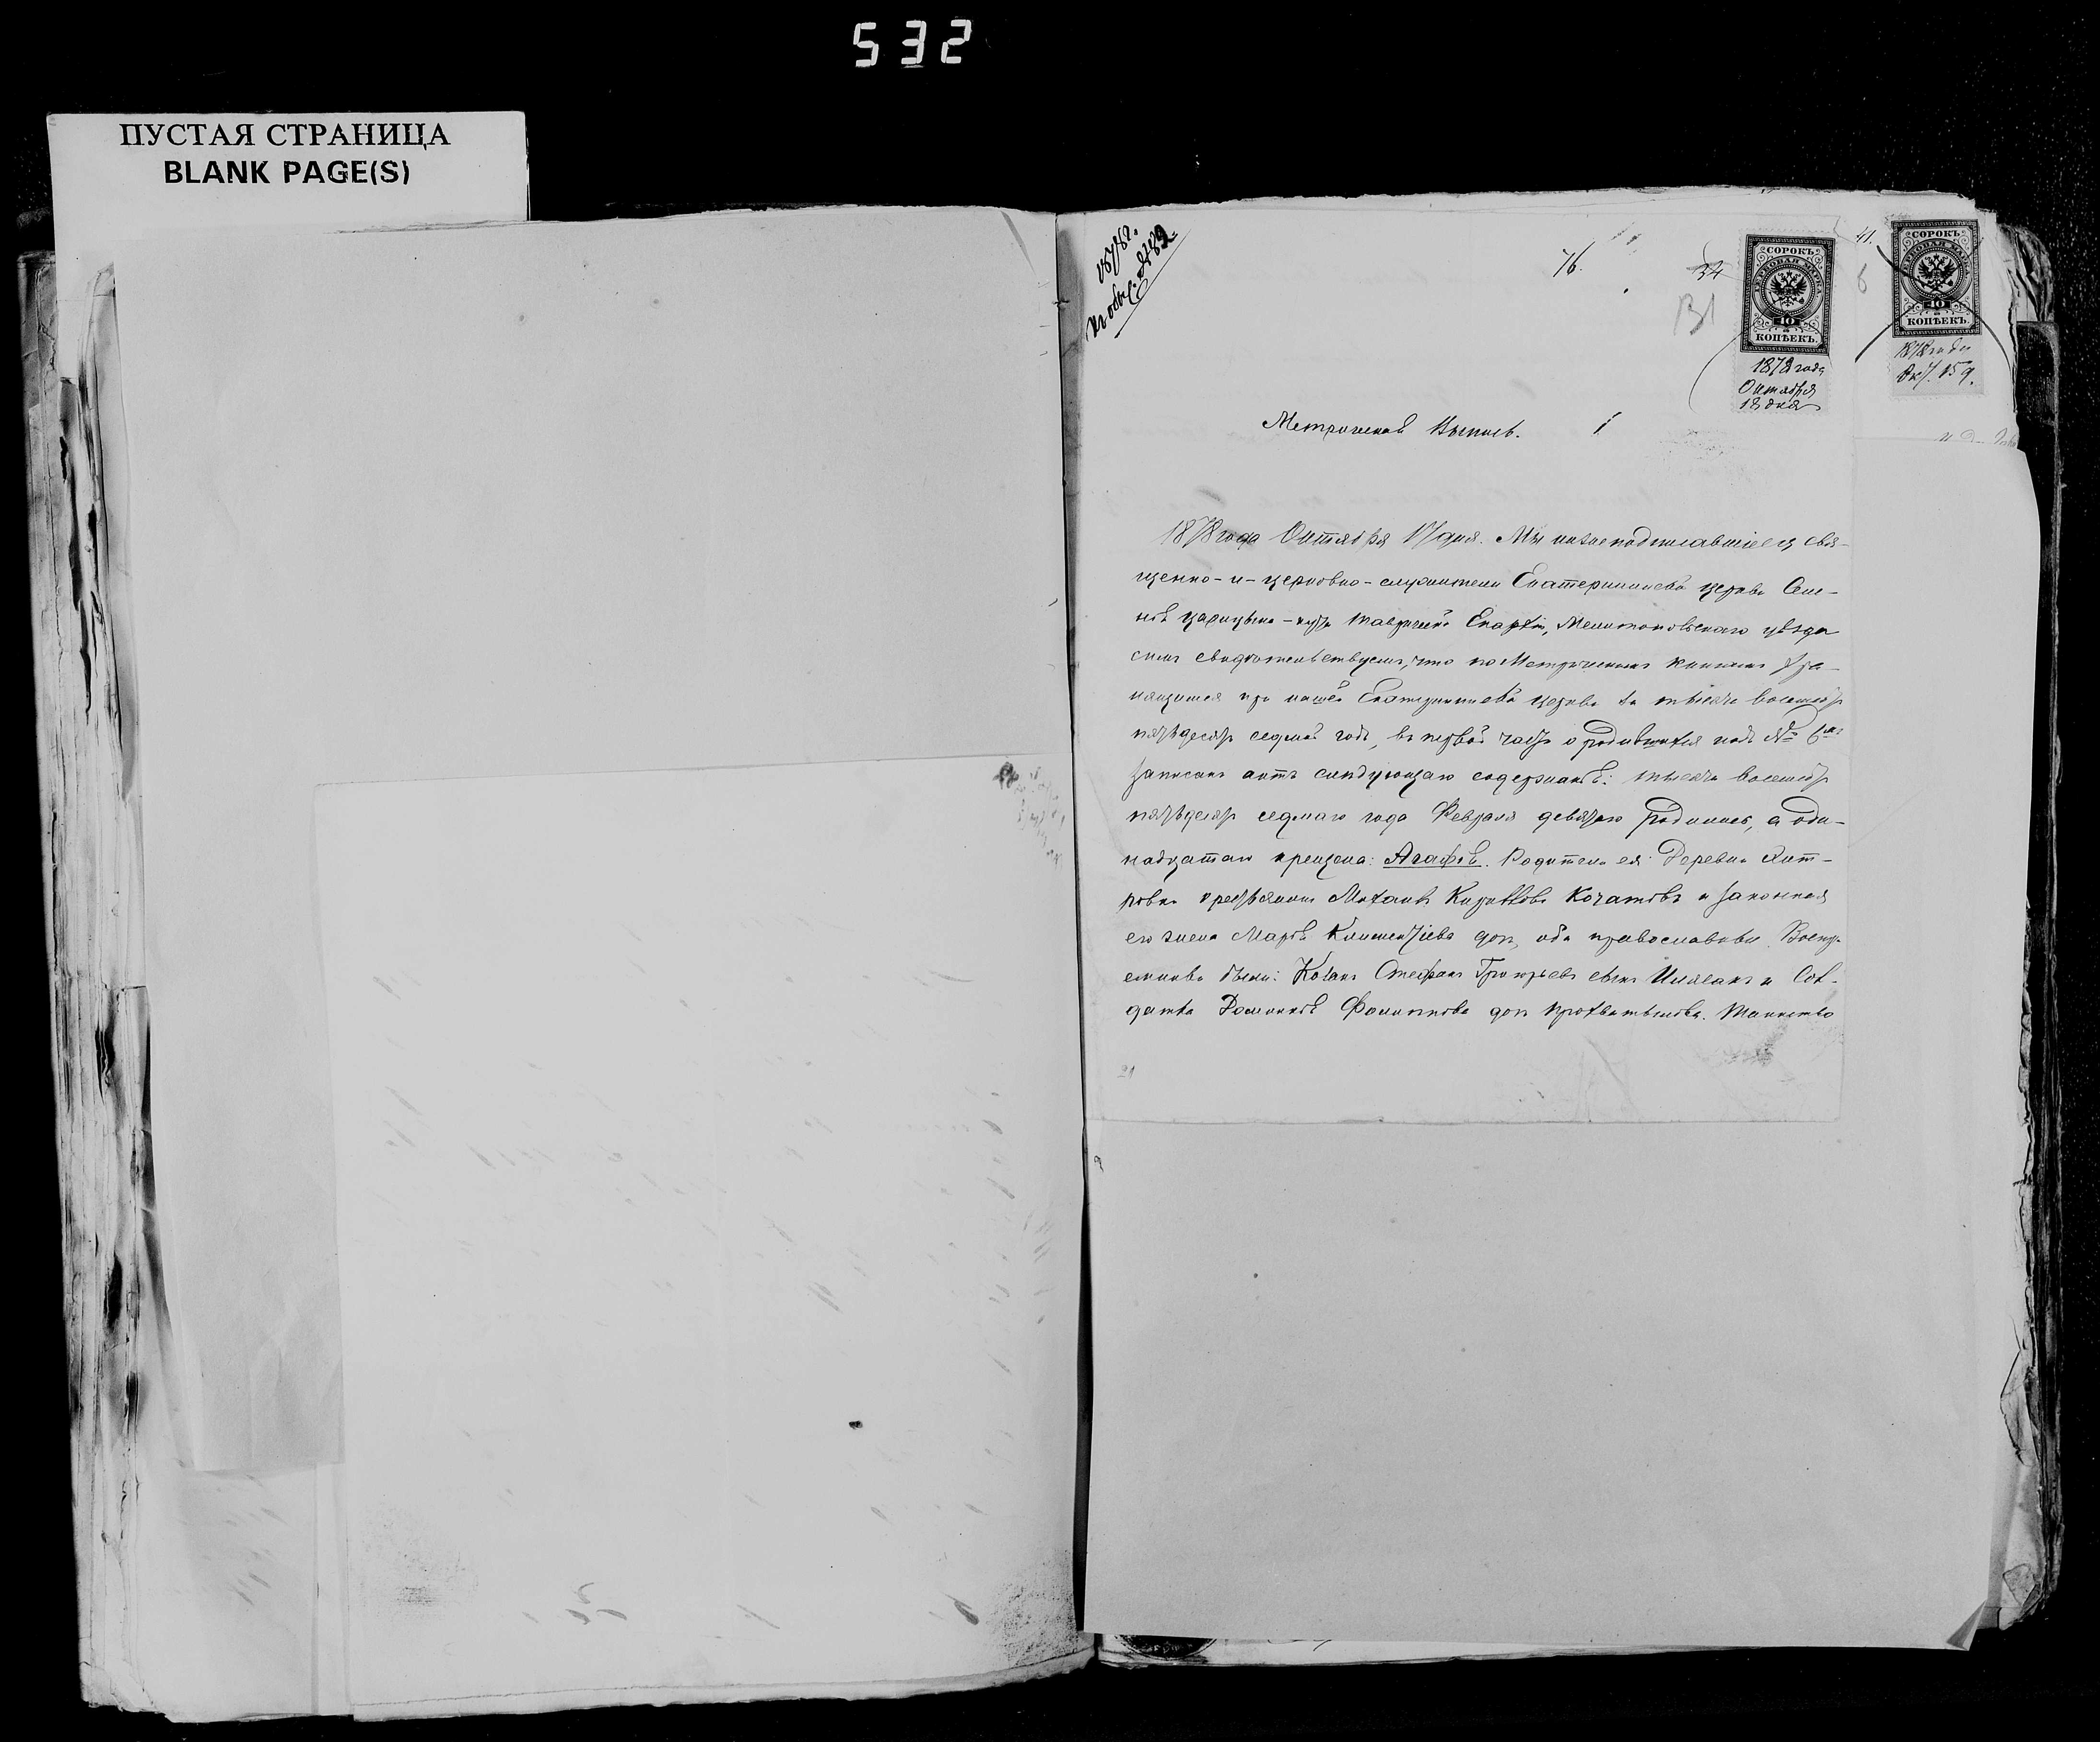 532
ПУСТАЯ СТРАНИЦА
BLANK PAGE(S)
1878 г.
Къ обыс. № 82
76.
34
41.
СОРОКЪ
ГЕРБОВАЯ МАРКА
40
КОПѢЕКЪ.
1878 года
Октября
18 дня
СОРОКЪ
ГЕРБОВАЯ МАРКА
40
КОПѢЕКЪ.
1878 года
Окт. 15 д.
Метрическая Выпись.
1878 года Октября 17 дня. Мы нижеподписавшіеся свя-
щенно-и-церковно-служители Екатерининской церкви Селе-
нія Царицына-кутъ Таврической Епархіи, Мелитопольскаго уѣзда
симъ свидѣтельствуемъ, что по Метрическимъ книгамъ хра-
нящимся при нашей Екатерининской церкви за тысяча восемьсотъ
пятьдесятъ седмой годъ, въ первой части о родившихся подъ №
записанъ актъ слѣдующаго содержанія: тысяча восемьсотъ
пятьдесятъ седмаго года Февраля девятаго родилась, а оди-
надцатаго крещена: Агафія. Родители ея: Деревни
крестьянинъ Михаилъ и законная
его жена Марѳа Климентіева доч, оба православные. Воспрі-
емники были: Козакъ Стефанъ Григорьевъ сынъ и Сол-
датка Домникія Филиппова доч Таинство